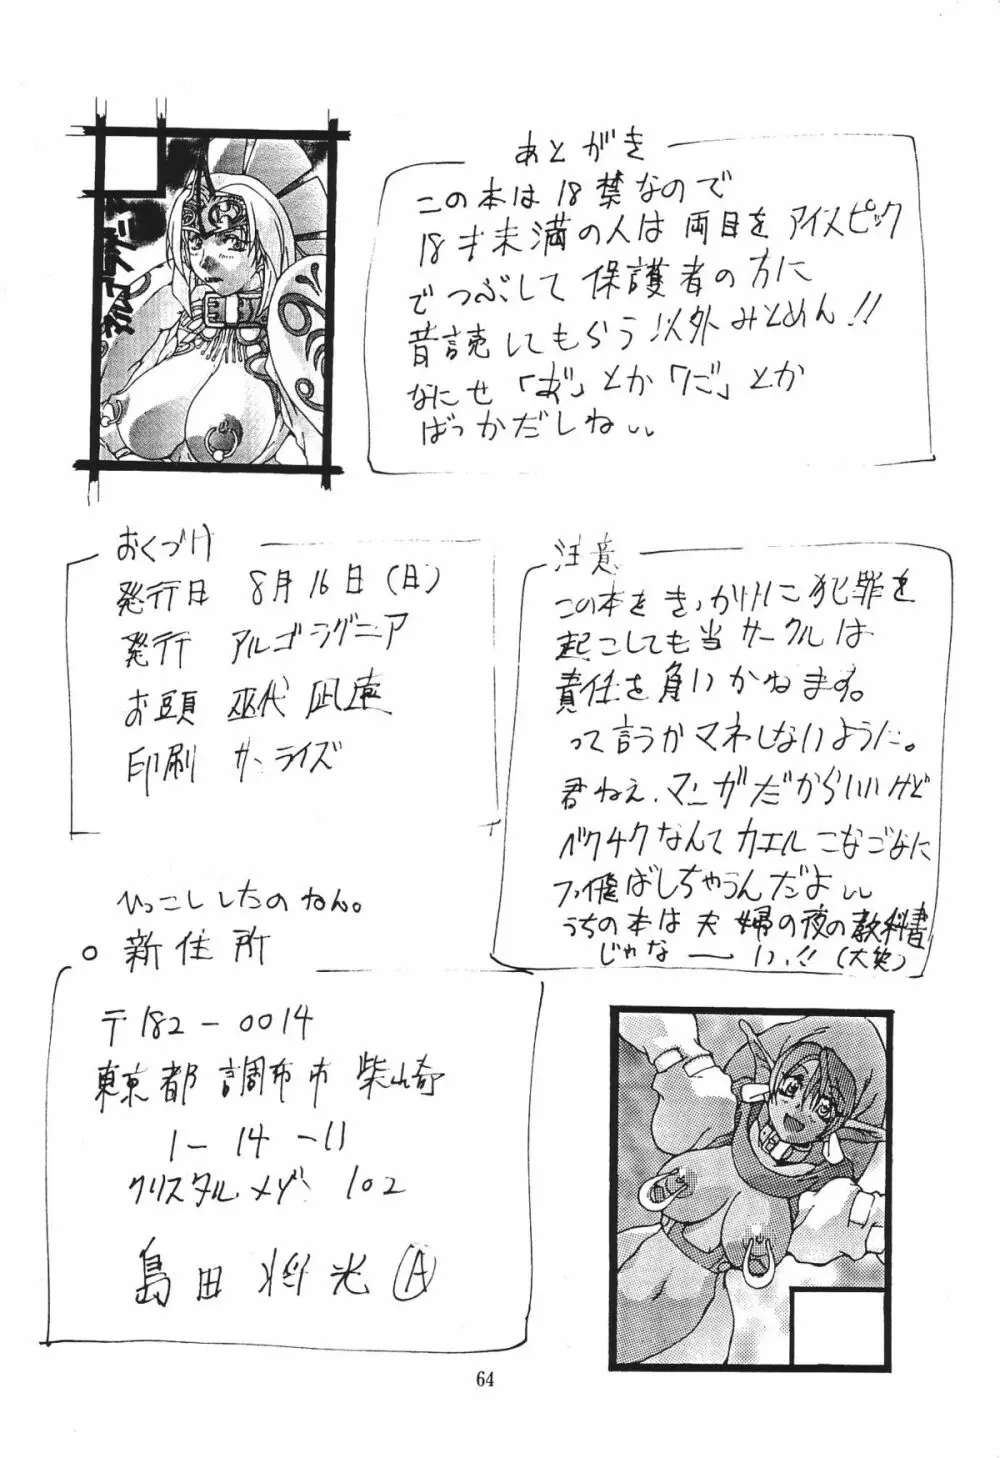 あとがき
この本は18禁なので
18才未満の人は両目をアイスピック
でつぶして保護者の方に
音読してもらう以外みとめん!!
なにせ「お」とか「ご」とか
ばっかだしねぃぃ
おくづけ
発行日 8月16日(日)
発行 アルゴラグニア
お頭 巫代凪遠
印刷 サンライズ
注意
この本をきっかけに犯罪を
起こしても当サークルは
責任を負いかねます。
って言うかマネしないように。
君ねえ、マンガだからいいけど
ベクチクなんてカエルこなごなに
フッ飛ばしちゃうんだよぃぃ
うちの本は夫婦の夜の教科書
じゃなーい!!(大笑)
ひっこししたのねん。
○新住所
〒182-0014
東京都調布市柴崎
1-14-11
クリスタルメゾン 102
島田将光 A
64